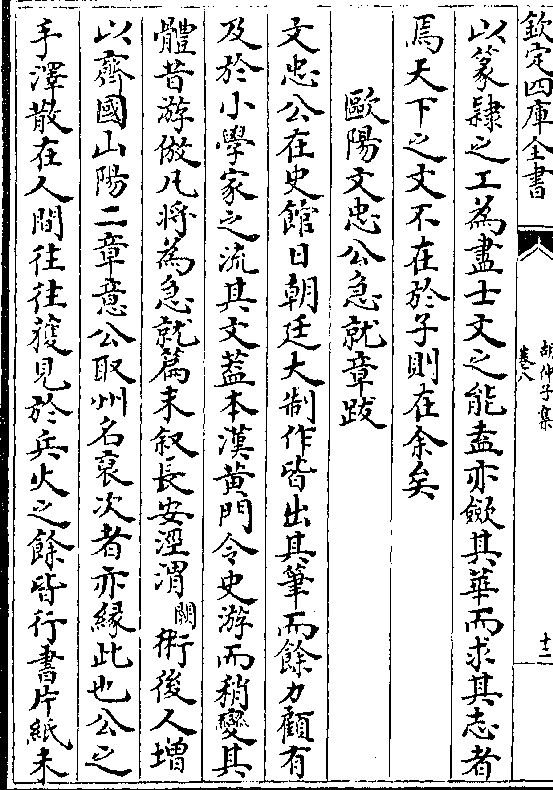 欽定四庫全書
胡仲子集
卷八
十二
以篆隸之工為盡士文之能盍亦斂其華而求其志者
焉天下之文不在於子則在余矣
歐陽文忠公急就章跋
文忠公在史館日朝廷大制作皆出其筆而餘力顧有
及於小學家之流其文蓋本漢黄門令史游而稍變其
體昔游倣凡將為急就篇末叙長安涇渭闕術後人增
以齊國山陽二章意公取州名裒次者亦縁此也公之
手澤散在人間往往獲見於兵火之餘皆行書片紙未